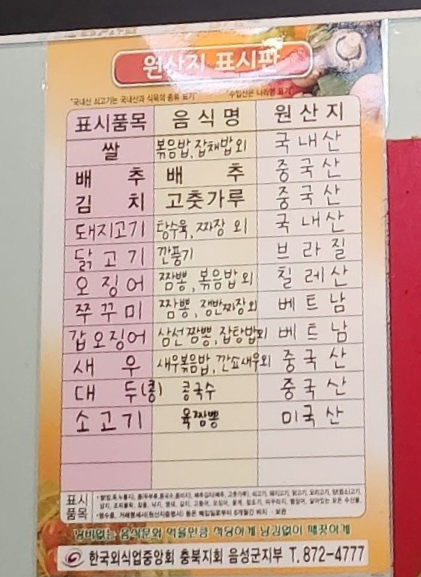 원산지 표시판
"국내산 쇠고기는 국내산과 식육의 종류 표기" "수입산은 나라명 표기"
표시품목 음식명 원산지
쌀 볶음밥,잡채밥외 국내산
배추 배추 중국산
김치 고춧가루 중국산
돼지고기 탕수육,짜장 외 국내산
닭고기 깐풍기 브라질
오징어 짬뽕,볶음밥외 칠레산
쭈꾸미 짬뽕,쟁반짜장외 베트남
갑오징어 삼선짬뽕,잡탕밥외 베트남
새우 새우볶음밥,깐쇼새우외 중국산
대두(콩) 콩국수 중국산
소고기 육짬뽕 미국산
표시품목
•영수증, 거래명세서(원산지증명서) 등은 매입일로부터 6개월간 비치·보관
낭비없는 음식문화 먹을만큼 적당하게 남김없이 깨끗하게
한국외식업중앙회 충북지회 음성군지부 T. 872-4777